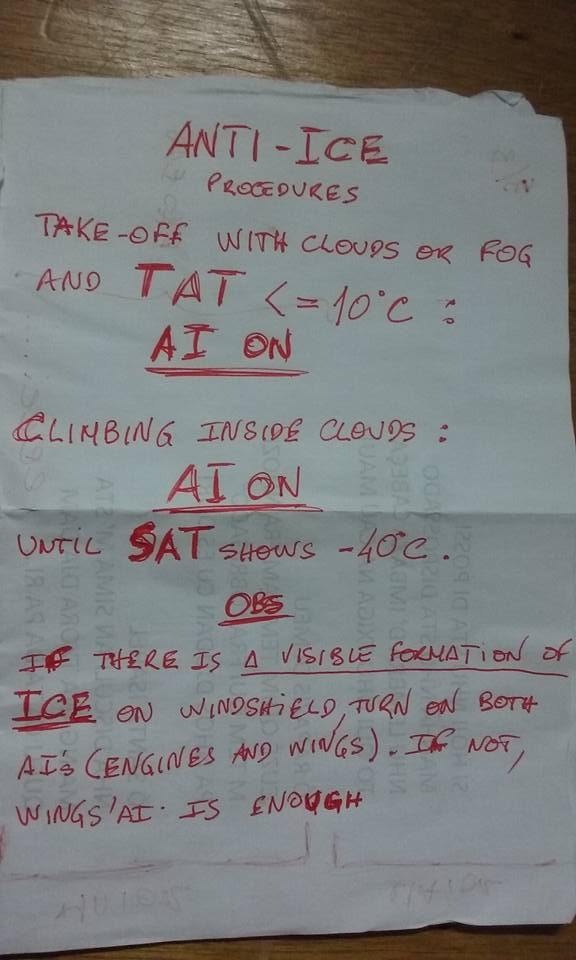 ANTI-ICE
PROCEDURES
TAKE-OFF WITH CLOUDS OR FOG
AND TAT <=10°C :
AI ON
CLIMBING INSIDE CLOUDS :
AI ON
UNTIL SAT SHOWS -40°C.
OBS
IF THERE IS A VISIBLE FORMATION OF
ICE ON WINDSHIELD, TURN ON BOTH
AI's (ENGINES AND WINGS). IF NOT,
WINGS' AI. IS ENOUGH